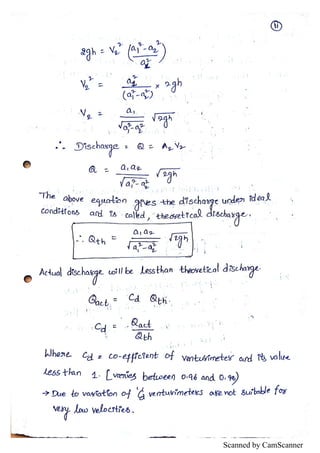 11
2gh = V₂² (a₁² - a₂² / a₁²)
V₂² = a₁² / (a₁² - a₂²) × 2gh
V₂ = a₁ / √a₁² - a₂² √2gh
∴ Discharge = Q = A₂ V₂
Q = a₁ a₂ / √a₁² - a₂² √2gh
The above equation gives the discharge under ideal
conditions and is called, theoretical discharge.
∴ Qth = a₁ a₂ / √a₁² - a₂² √2gh
Actual discharge will be less than theoretical discharge.
Qact = Cd Qth.
Cd = Qact / Qth
Where Cd = co-efficient of venturimeter and its value
less than 1. [varies between 0.96 and 0.98)
→ Due to variation of 'Cd' venturimeters are not suitable for
very low velocities.
Scanned by CamScanner